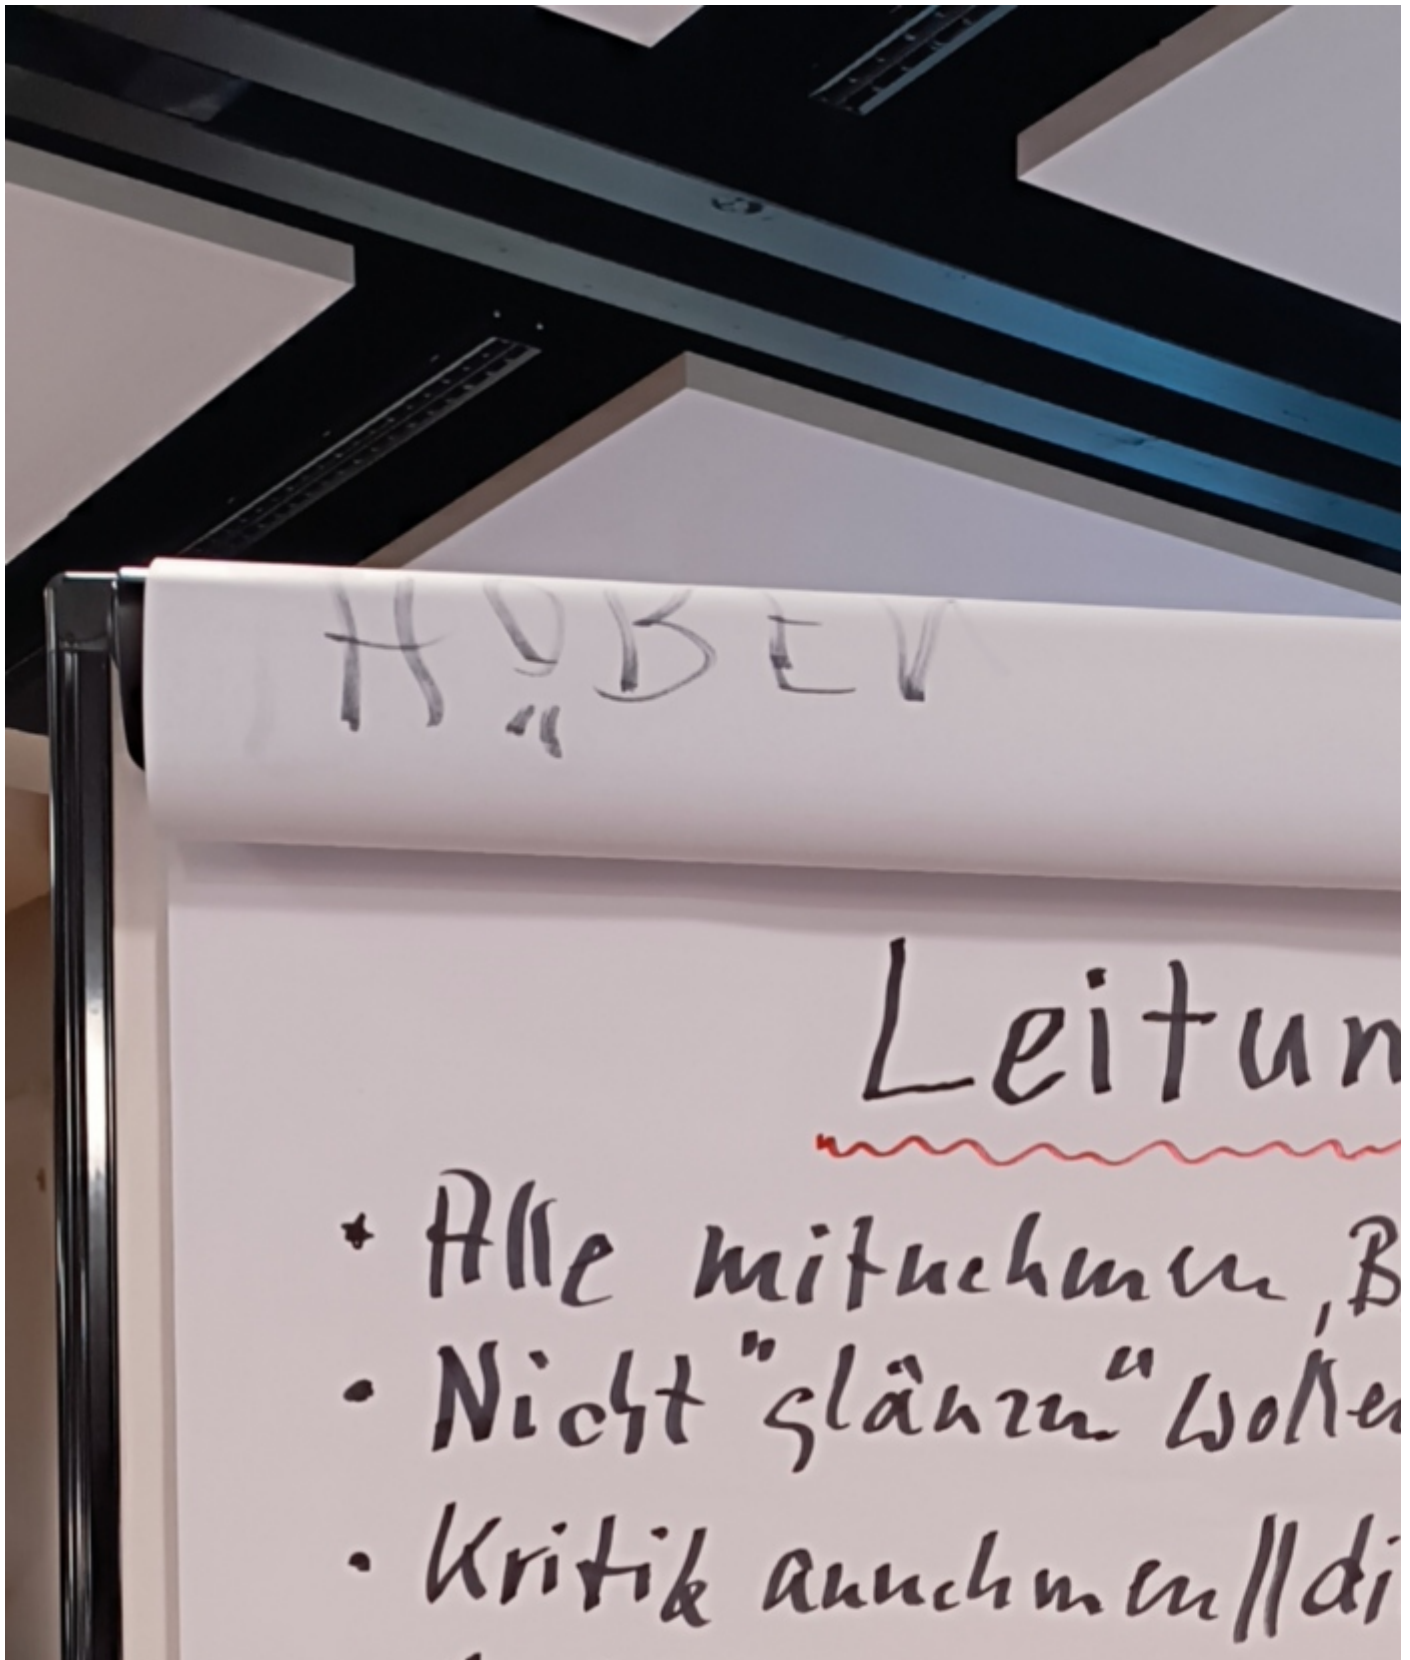 Leitun
* Alle mitnehmen, B
• Nicht "glänzen" wollen
• Kritik annehmen // di